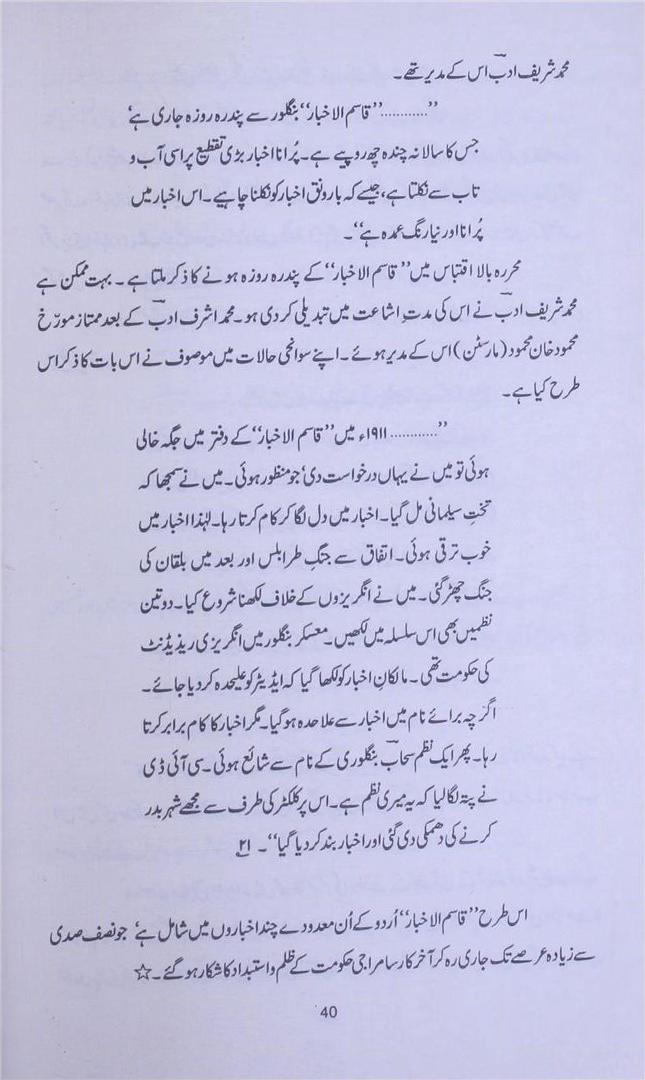 محمد شریف ادبؔ اس کے مدیر تھے۔
’’............’’قاسم الاخبار‘‘ بنگلور سے پندرہ روزہ جاری ہے‘
جس کا سالانہ چندہ چھ روپیے ہے۔ پُرانا اخبار بڑی تقطیع پر اسی آب و
تاب سے نکلتا ہے، جیسے کہ بارونق اخبار کو نکلنا چاہیے۔ اس اخبار میں
پُرانا اور نیا رنگ عمدہ ہے‘‘۔
محررہ بالا اقتباس میں ’’قاسم الاخبار‘‘ کے پندرہ روزہ ہونے کا ذکر ملتا ہے۔ بہت ممکن ہے
محمد شریف ادبؔ نے اس کی مدتِ اشاعت میں تبدیلی کر دی ہو۔ محمد اشرف ادبؔ کے بعد ممتاز مورّخ
محمود خان محمود (مارسٹن) اس کے مدیر ہوئے۔ اپنے سوانحی حالات میں موصوف نے اس بات کا ذکر اس
طرح کیا ہے۔
’’............ ۱۹۱۱ء میں ’’قاسم الاخبار‘‘ کے دفتر میں جگہ خالی
ہوئی تو میں نے یہاں درخواست دی‘ جو منظور ہوئی۔ میں نے سمجھا کہ
تختِ سیلمانی مل گیا۔ اخبار میں دل لگا کر کام کرتا رہا۔ لہٰذا اخبار میں
خوب ترقی ہوئی۔ اتفاق سے جنگِ طرابلس اور بعد میں بلقان کی
جنگ چھڑ گئی۔ میں نے انگریزوں کے خلاف لکھنا شروع کیا۔ دو تین
نظمیں بھی اس سلسلہ میں لکھیں۔ معسکر بنگلور میں انگریزی ریذیڈنٹ
کی حکومت تھی۔ مالکانِ اخبار کو لکھا گیا کہ ایڈیٹر کو علیحدہ کر دیا جائے۔
اگرچہ برائے نام میں اخبار سے علاحدہ ہوگیا۔ مگر اخبار کا کام برابر کرتا
رہا۔ پھر ایک نظم سحابؔ بنگلوری کے نام سے شائع ہوئی۔ سی آئی ڈی
نے پتہ لگا لیا کہ یہ میری نظم ہے۔ اس پر کلکٹر کی طرف سے مجھے شہر بدر
کرنے کی دھمکی دی گئی اور اخبار بند کر دیا گیا‘‘۔ ۲۱
اس طرح ’’قاسم الاخبار‘‘ اُردو کے اُن معدودے چند اخباروں میں شامل ہے‘ جو نصف صدی
سے زیادہ عرصے تک جاری رہ کر آخر کار سامراجی حکومت کے ظلم و استبداد کا شکار ہوگئے۔ ☆
40